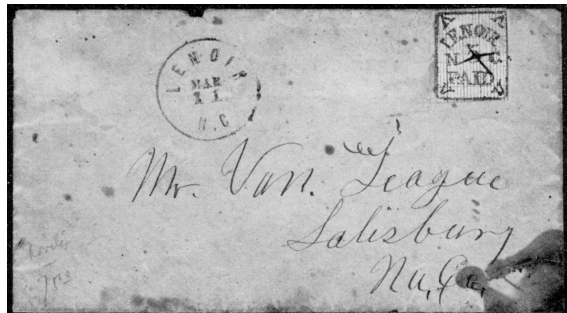 LENOIR
MAR
11
N.C
LENOIR
N C
PAID
Mr. Van. Teague
Salisbury
No, Ca,